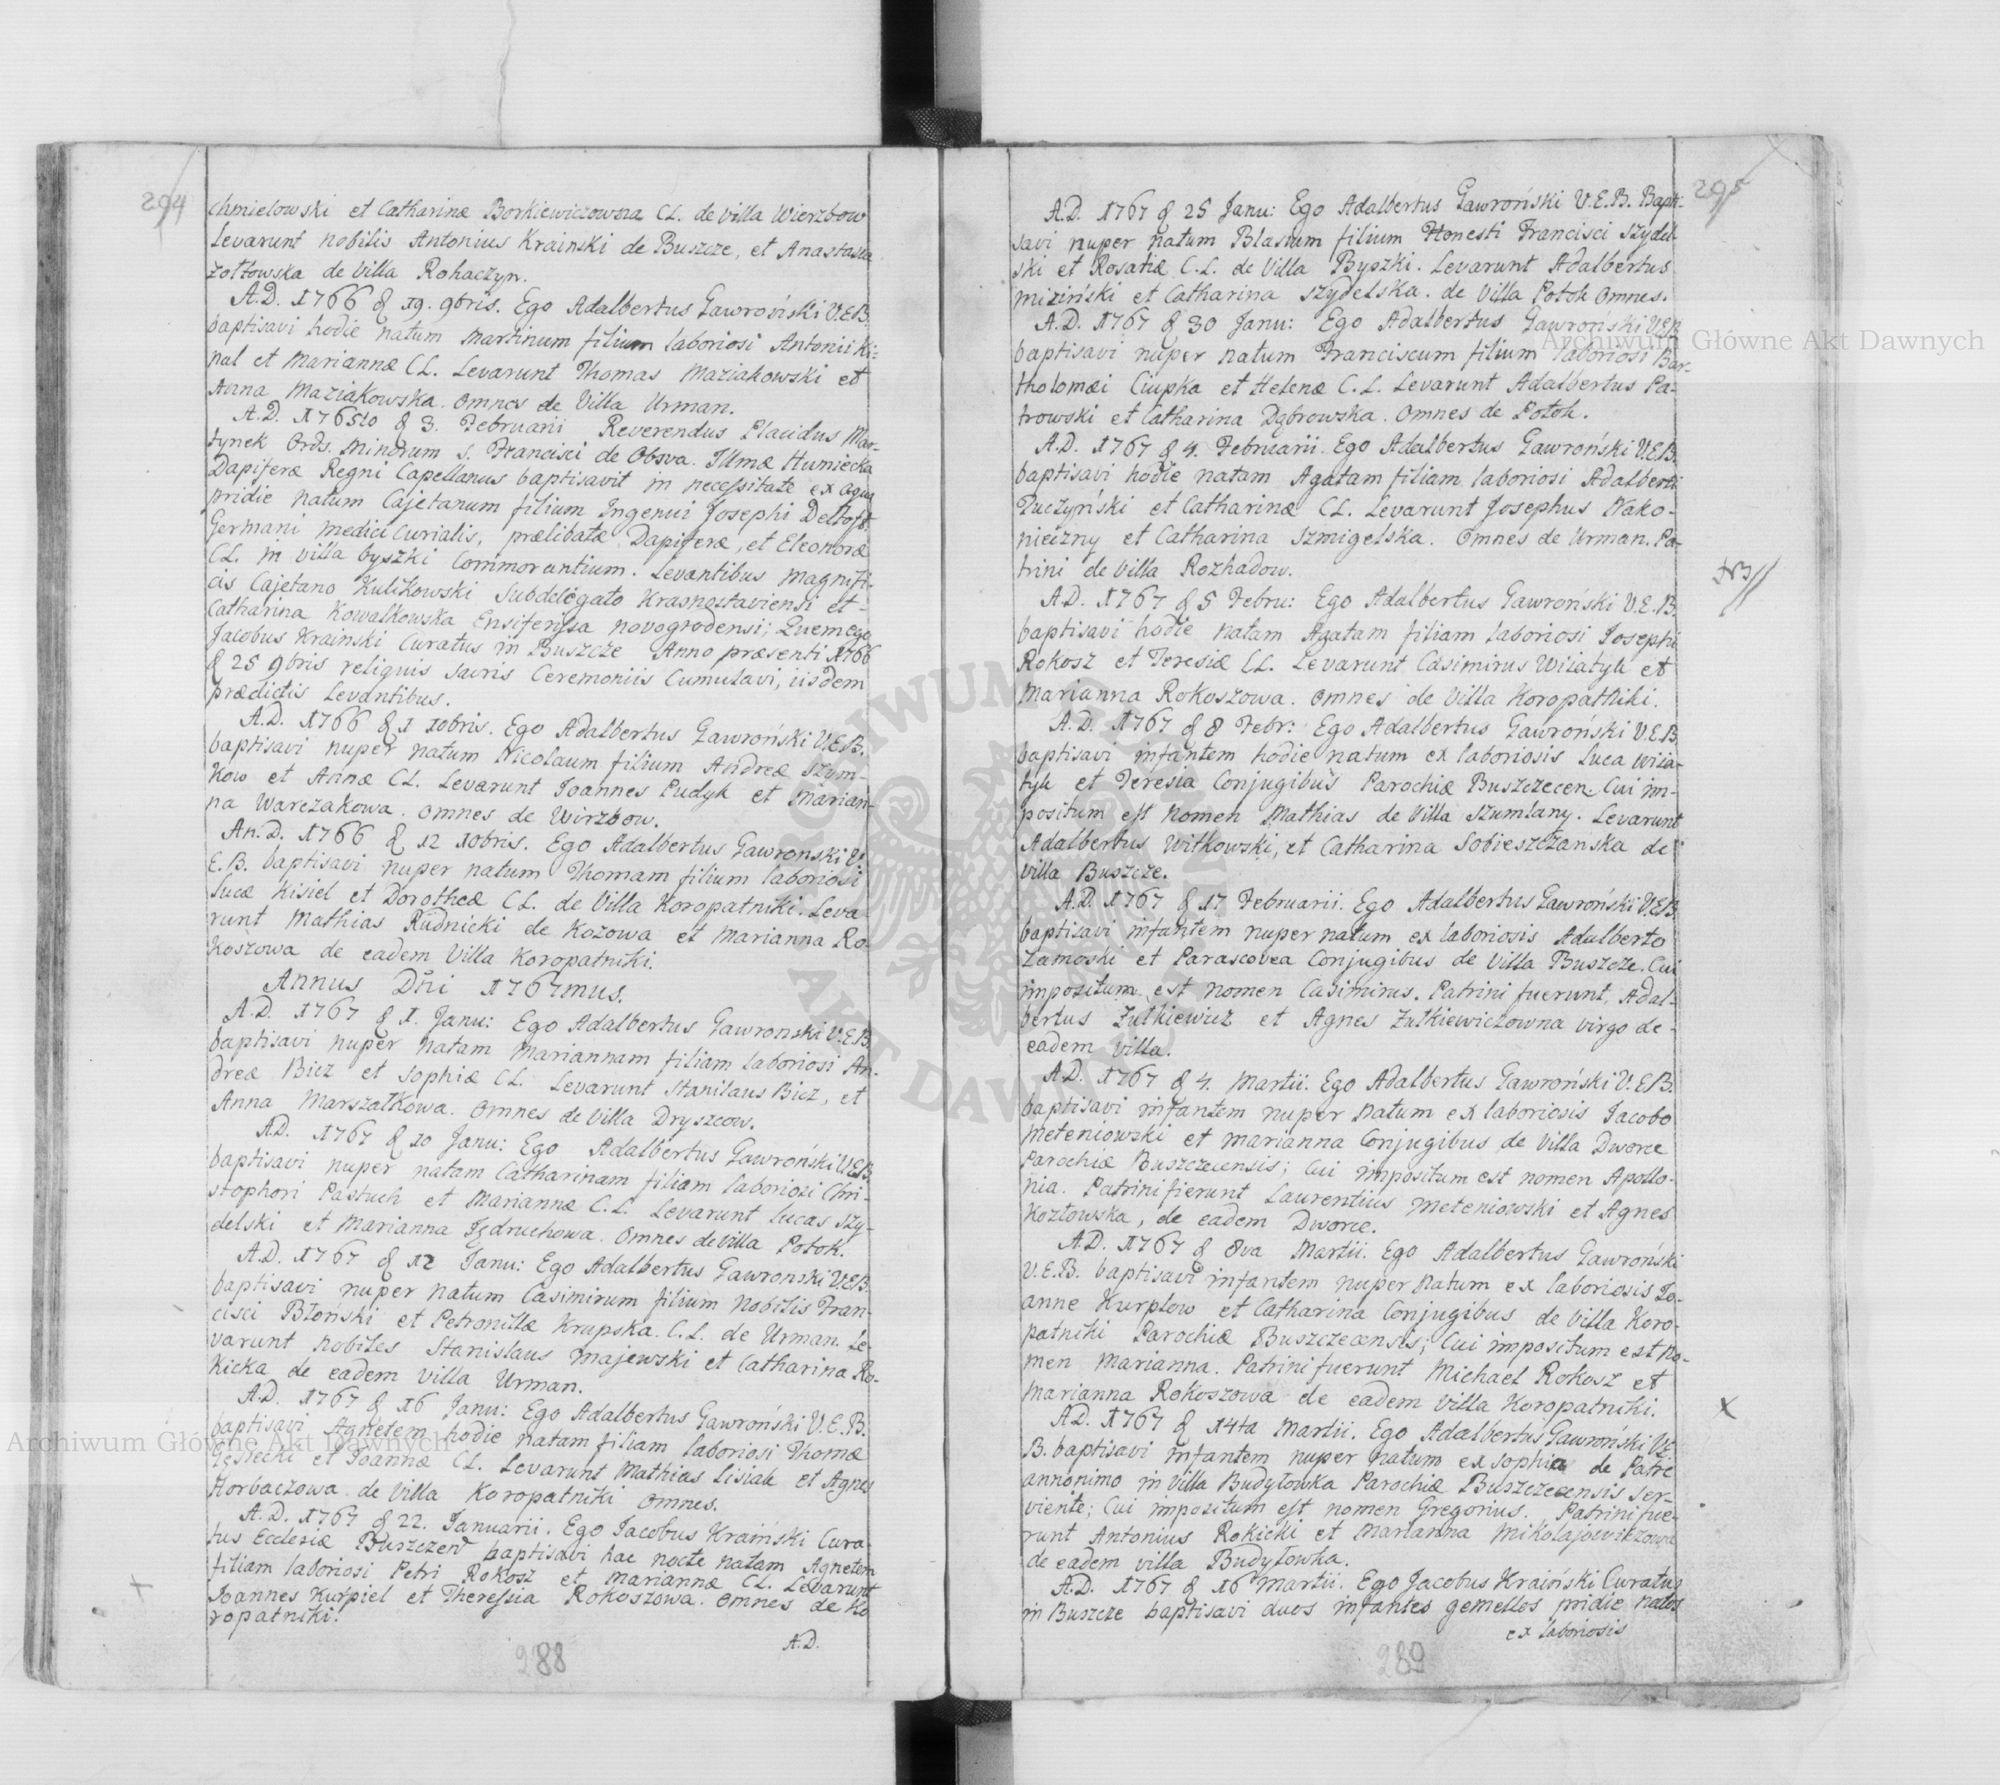 294
Chmielowski et Catharinæ Borkiewiczowna CL. de Villa Wierzbow
Levarunt nobilis Antonius Krainski de Buszcze, et Anastasia
Zołtowska de Villa Rohaczyn.
A.D. 1766 & 19. 9bris. Ego Adalbertus Gawroński V.E.B.
baptisavi hodie natum Martinum filium laboriosi Antonii Ki-
nal et Mariannæ CL. Levarunt Thomas Maziakowski et
Anna Maziakowska. Omnes de Villa Urman.
A.D. 1765to & 3. Februarii Reverendus Placidus Mar-
tynek Ords. Minorum S. Francisci de Obsva. Illmæ Humiecka
Dapiferæ Regni Capellanus baptisavit in necessitate ex aqua
pridie natum Cajetanum filium Ingenui Josephi Deltoft
Germani medici Curialis, prælibatæ Dapiferæ, et Eleonoræ
CL. in villa byszki Commorantium. Levantibus Magnifi-
cis Cajetano Kulikowski Subdelegato Krasnostaviensi et-
Catharina Kowalkowska Ensiferissa novogrodensi; Quem ego
Jacobus Krainski Curatus in Buszcze Anno præsenti 1766
& 25 9bris reliquis sacris Ceremoniis Cumulavi, iisdem
prædictis Levantibus.
A.D. 1766 & 1 10bris. Ego Adalbertus Gawroński V.E.B.
baptisavi nuper natum Nicolaum filium Andreæ Szym-
kow et Annæ CL. Levarunt Joannes Pudyk et Marian-
na Warczakowa. Omnes de Wirzbow.
An.D. 1766 & 12 10bris. Ego Adalbertus Gawronski V.
E.B. baptisavi nuper natum Thomam filium laboriosi
Lucæ Kisiel et Dorotheæ CL. de Villa Koropatniki. Leva-
runt Mathias Rudnicki de Kozowa et Marianna Ro-
koszowa de eadem Villa Koropatniki.
Annus Dni 1767mus.
A.D. 1767 & 1. Janu: Ego Adalbertus Gawronski V.E.B.
baptisavi nuper natam Mariannam filiam laboriosi An-
dreæ Bicz et Sophiæ CL. Levarunt Stanilaus Bicz, et
Anna Marszałkowa. Omnes de Villa Dryszcow.
A.D. 1767 & 10 Janu: Ego Adalbertus Gawroński V.E.B.
baptisavi nuper natam Catharinam filiam laboriosi Chri-
stophori Pastuch et Mariannæ C.L. Levarunt Lucas Szy-
delski et Marianna Jędruchowa. Omnes de Villa Potok.
A.D. 1767 & 12 Janu: Ego Adalbertus Gawronski V.E.B.
baptisavi nuper natum Casimirum filium Nobilis Fran-
cisci Błoński et Petronillæ Krupska. C.L. de Urman. Le-
varunt nobiles Stanislaus Majewski et Catharina Ro-
kicka de eadem villa Urman.
A.D. 1767 & 16 Janu: Ego Adalbertus Gawroński V.E.B.
baptisavi Agnetem hodie natam filiam laboriosi Thomæ
et Joannæ CL. Levarunt Mathias Lisiak et Agnes
Horbaczowa de Villa Koropatniki Omnes.
A.D. 1767 & 22. Januarii. Ego Jacobus Kraiński Cura-
tus Ecclesiæ baptisavi hac nocte natam Agnetem
filiam laboriosi Petri Rokosz et Mariannæ CL. Levarunt
Joannes Kurpiel et Theressia Rokoszowa. Omnes de Ko
ropatniki.
A.D.
288
295
A.D. 1767 & 25 Janu: Ego Adalbertus Gawroński V.E.B. Bapti-
savi nuper natum Blasium filium Honesti Francisci Szydel-
ski et Rosaliæ C.L. de Villa Byszki. Levarunt Adalbertus
Miziński et Catharina Szydelska. de Villa Potok Omnes.
A.D. 1767 & 30 Janu: Ego Adalbertus Gawroński V.E.B.
baptisavi nuper natum Franciscum filium laboriosi Bar-
tholomæi Ciupka et Helenæ C.L. Levarunt Adalbertus Pa-
trowski et Catharina Dąbrowska. Omnes de Potok.
A.D. 1767 & 4. Februarii. Ego Adalbertus Gawroński V.E.B.
baptisavi hodie natam Agatam filiam laboriosi Adalberti
Puczyński et Catharinæ CL. Levarunt Josephus Nako-
nieczny et Catharina Szmigelska. Omnes de Urman. Pa-
trini de Villa Rozhadow.
A.D. 1767 & 5 Febru: Ego Adalbertus Gawroński V.E.B.
baptisavi hodie natam Agatam filiam laboriosi Josephi
Rokosz et Teresiæ CL. Levarunt Casimirus Wiiatyk et
Marianna Rokoszowa. Omnes de Villa Koropatniki.
A.D. 1767 & 8 Febr: Ego Adalbertus Gawroński V.E.B.
baptisavi infantem hodie natum ex laboriosis Luca Wiia-
tyk et Teresia Conjugibus Parochiæ Buszczecen. Cui im-
positum est nomen Mathias de Villa Szumlany. Levarunt
Adalbertus Witkowski, et Catharina Sobieszczanska de
villa Buszcze.
A.D. 1767 & 17 Februarii. Ego Adalbertus Gawroński V.E.B.
baptisavi infantem nuper natum ex laboriosis Adalberto
Zamoski et Parascovea Conjugibus de Villa Buszcze. Cui
impositum est nomen Casimirus. Patrini fuerunt, Adal-
bertus Zulkiewicz et Agnes Zulkiewiczowna virgo de-
eadem villa.
A.D. 1767 & 4. Martii. Ego Adalbertus Gawroński V.E.B.
baptisavi infantem nuper natum ex laboriosis Jacobo
Meteniowski et Marianna Conjugibus de Villa Dworce
Parochiæ Buszczecensis; Cui impositum est nomen Apollo-
nia. Patrini fierunt Laurentius Meteniowski et Agnes
Kozłowska, de eadem Dworce.
A.D. 1767 & 8va Martii. Ego Adalbertus Gawroński
V.E.B. baptisavi infantem nuper natum ex laboriosis Jo-
anne Kurplow et Catharina Conjugibus de Villa Koro-
patniki Parochiæ Buszczecensis; Cui impositum est no-
men Marianna. Patrini fuerunt Michael Rokosz et
Marianna Rokoszowa de eadem Villa Koropatniki.
A.D. 1767 & 14ta Martii. Ego Adalbertus Gawroński V.E.
B. baptisavi infantem nuper natum ex Sophia de Patre
annonimo in Villa Budyłowka Parochiæ Buszczecensis ser-
viente; Cui impositum est nomen Gregorius. Patrini fue-
runt Antonius Rokicki et Marianna Mikolajowiczowa
de eadem villa Budyłowka.
A.D. 1767 & 16 Martii. Ego Jacobus Kraiński Curatus
in Buszcze baptisavi duos infantes gemellos pridie natos
ex laboriosis
289
Archiwum Główne Akt Dawnych
Archiwum Główne Akt Dawnych
ARCHIWUM GŁÓWNE AKT DAWNYCH